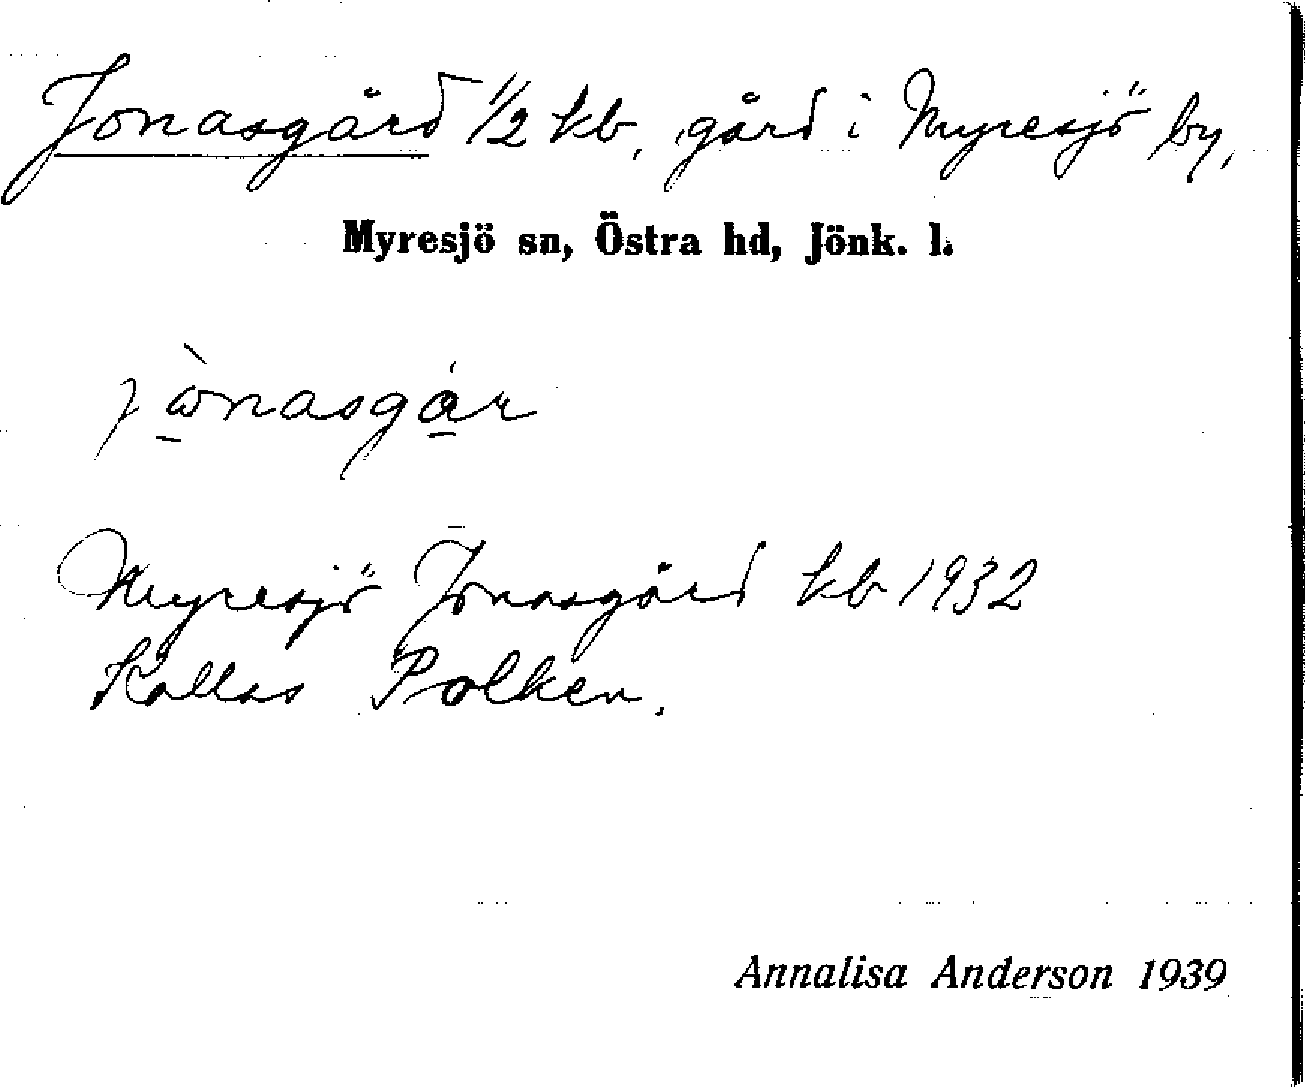 Jonasgård 1/2 kb, gård i Myresjö by,
Myresjö sn, Östra hd, Jönk. l.
Myresjö Jonasgård kb 1932
Kallas Polken.
Annalisa Anderson 1939